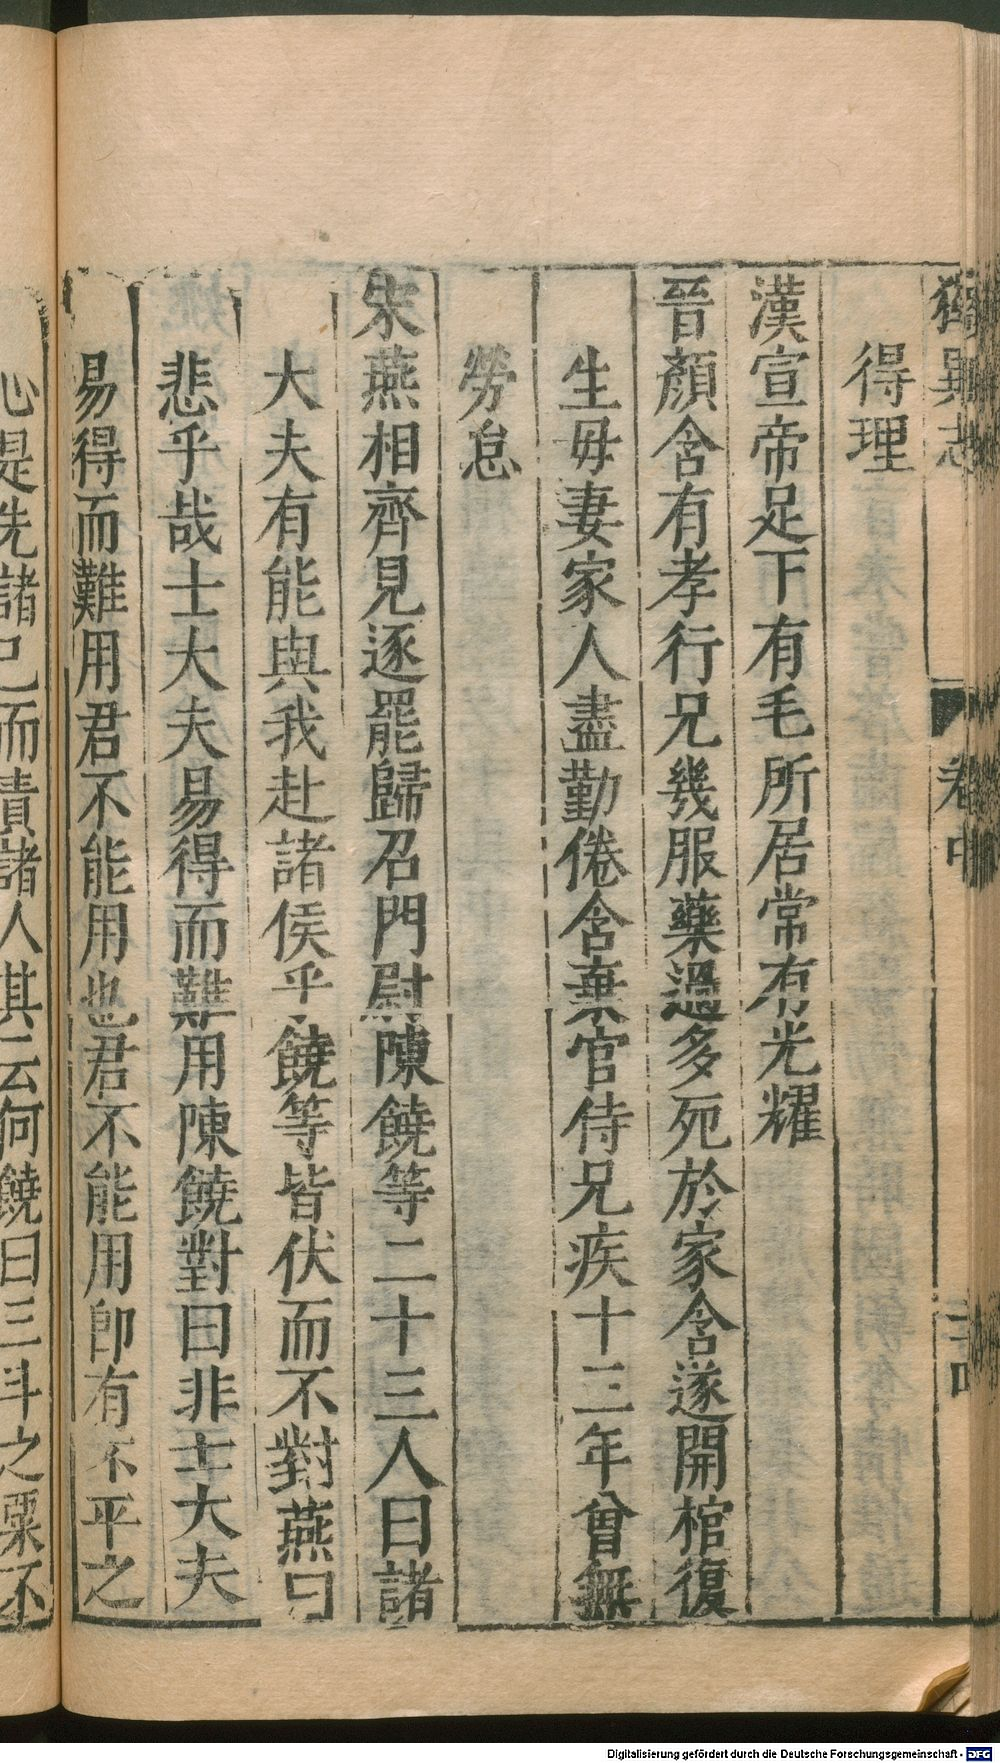 獨異志 卷中 二十四
得理
漢宣帝足下有毛所居常有光耀
晉顏含有孝行兄幾服藥過多死於家含遂開棺復
生母妻家人盡勤倦含棄官侍兄疾十三年曾無
勞怠
宋燕相齊見逐罷歸召門尉陳饒等二十三人曰諸
大夫有能與我赴諸侯乎饒等皆伏而不對燕曰
悲乎哉士大夫易得而難用陳饒對曰非士大夫
易得而難用君不能用也君不能用即有不平之
心是先諸己而責諸人其云何饒曰三斗之粟不
Digitalisierung gefördert durch die Deutsche Forschungsgemeinschaft - DFG